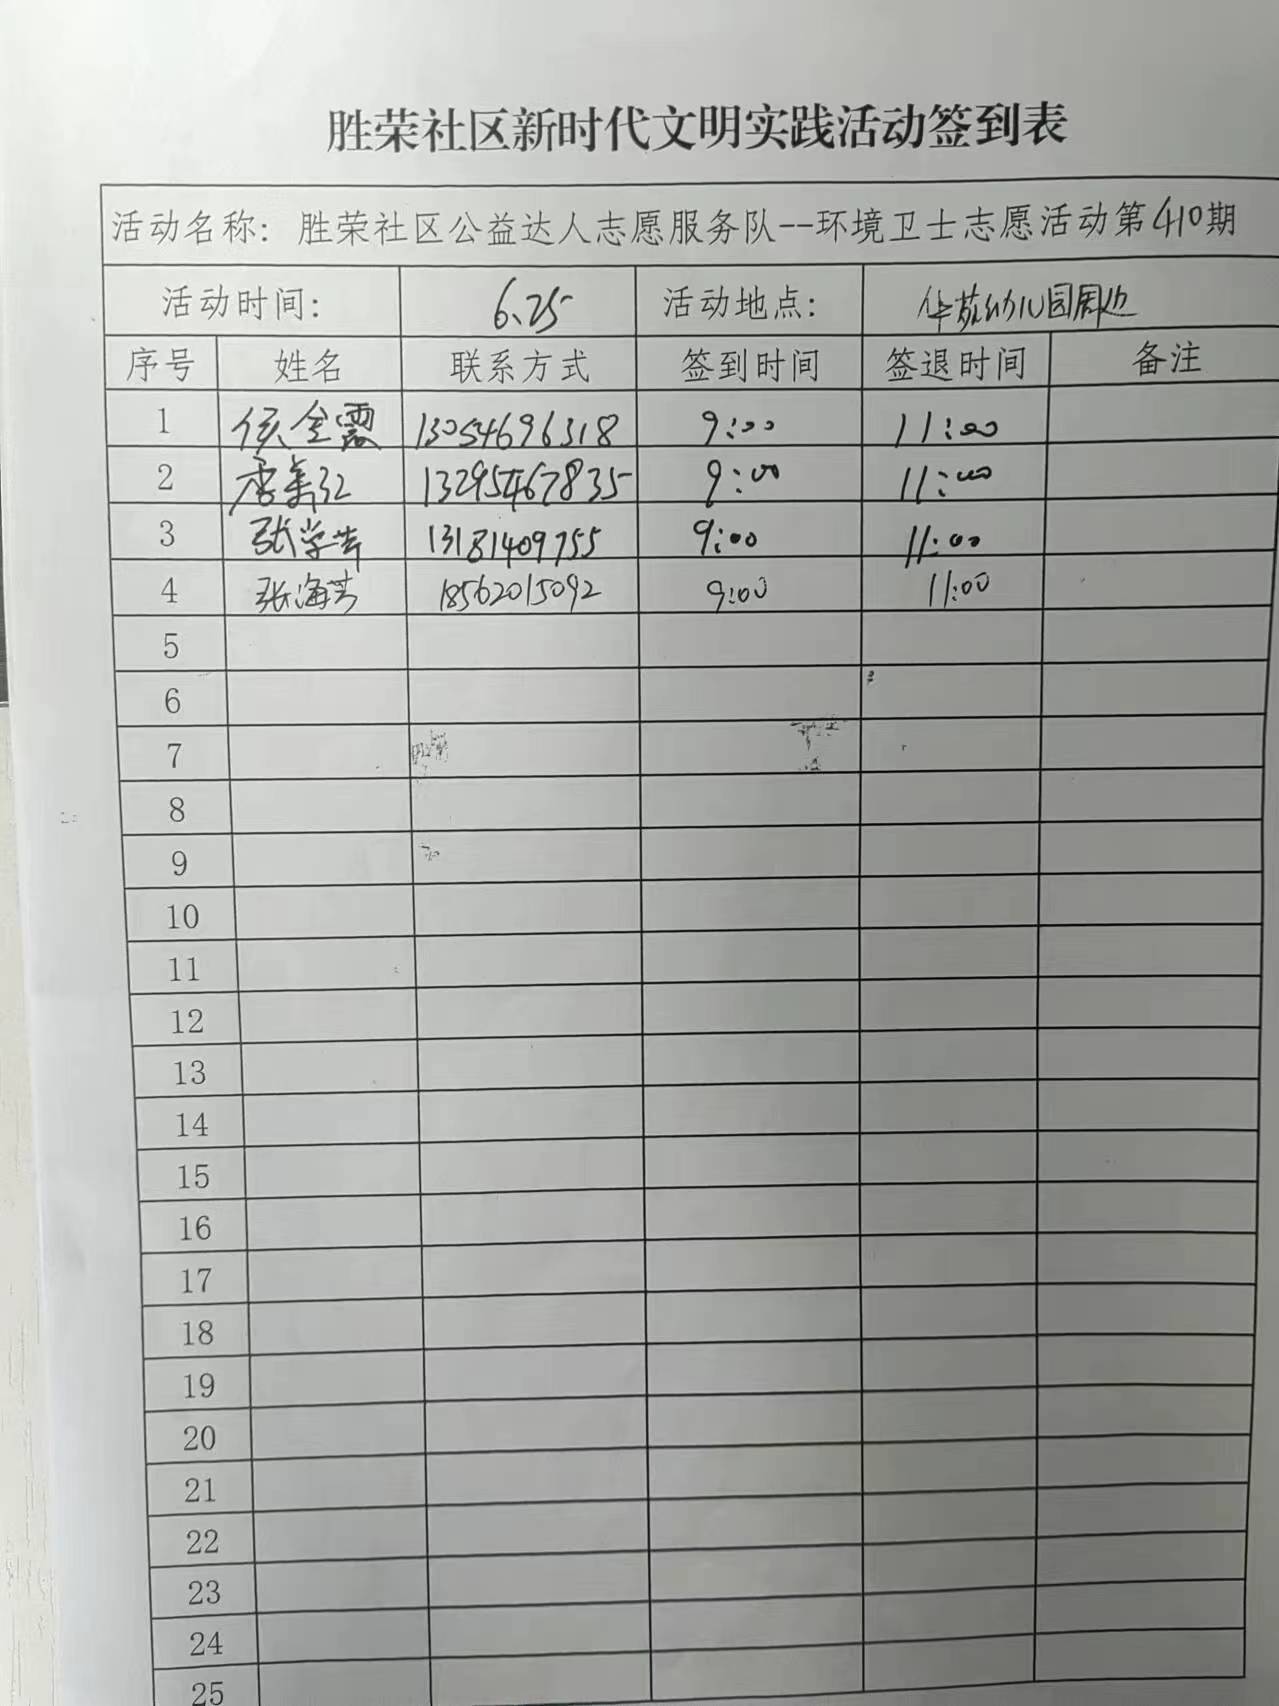 胜荣社区新时代文明实践活动签到表
活动名称：胜荣社区公益达人志愿服务队--环境卫士志愿活动第410期
活动时间： 6.25 活动地点： 华苑幼儿园周边
序号 姓名 联系方式 签到时间 签退时间 备注
1 侯金霞 13054696318 9:00 11:00
2 李美红 13295467835 9:00 11:00
3 张学芳 13181409755 9:00 11:00
4 张海芳 18562015092 9:00 11:00
5
6
7
8
9
10
11
12
13
14
15
16
17
18
19
20
21
22
23
24
25